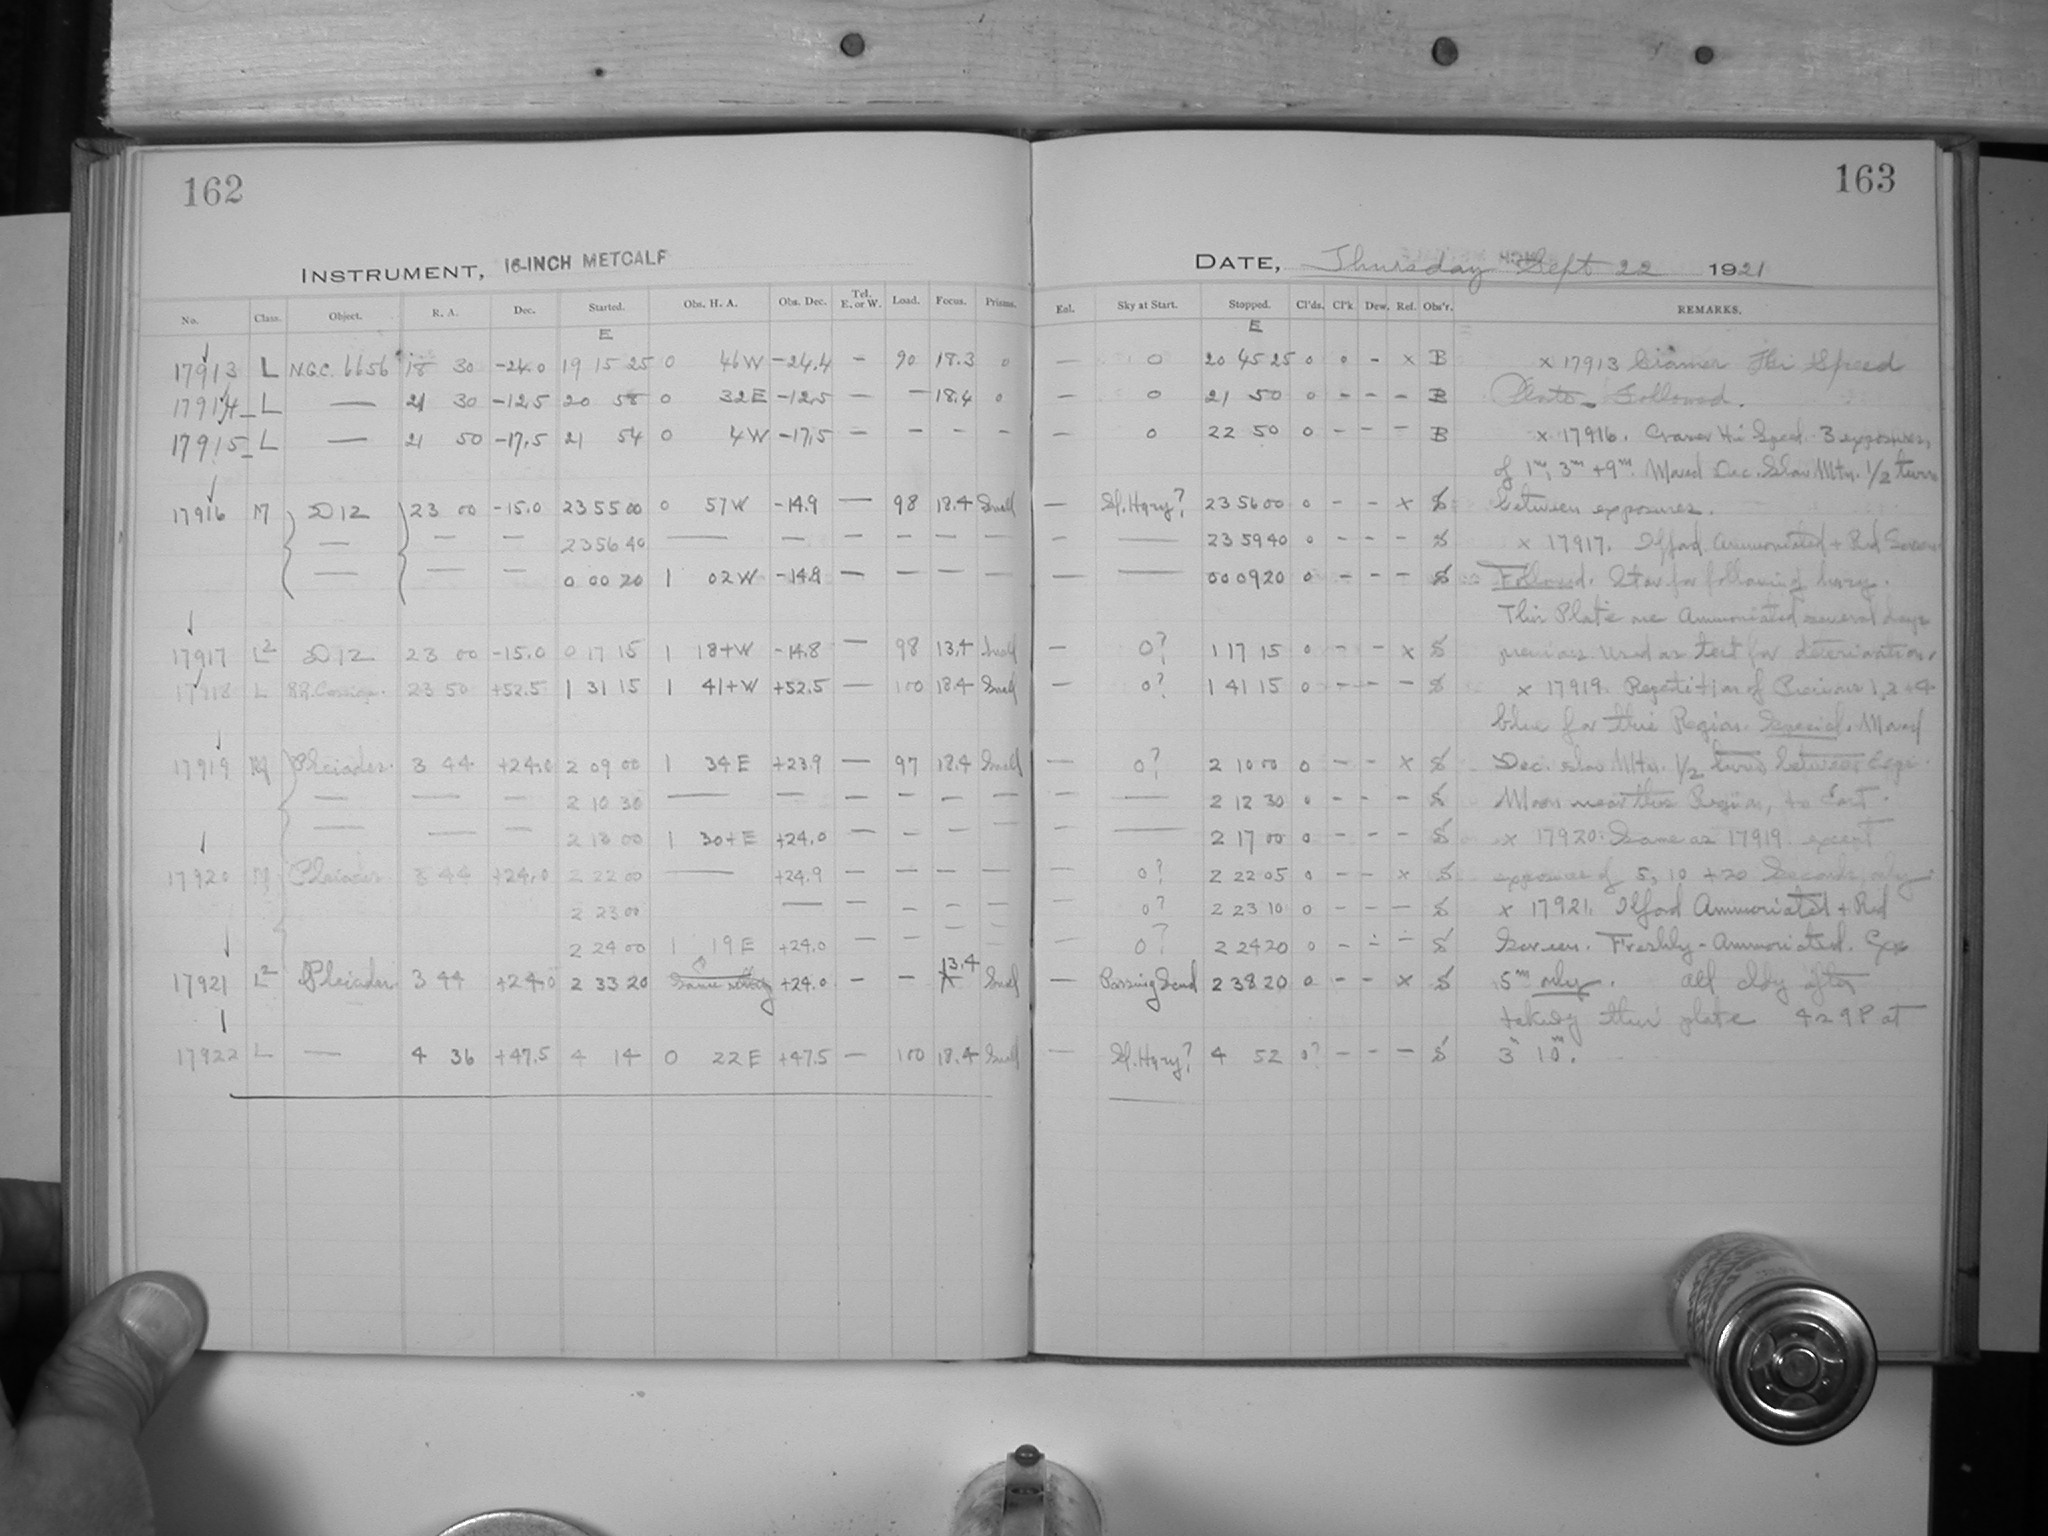 162
INSTRUMENT, 16-INCH METCALF
No. Class. Object. R. A. Dec. Started. Obs. H. A. Obs. Dec. Tel. E. or W. Load. Focus. Prisms.
E
17913 L N.G.C. 6656 18 30 -24.0 19 15 25 0 46 W -24.4 - 90 18.3 0
17914 L — 21 30 -12.5 20 58 0 32 E -12.5 - - 18.4 0
17915 L — 21 50 -17.5 21 54 0 4 W -17.5 - - - -
17916 M D12 23 00 -15.0 23 55 00 0 57 W -14.9 — 98 18.4 Small
— — — 23 56 40 — — — — — —
— — — 0 00 20 1 02 W -14.8 — — — —
17917 L2 D12 23 00 -15.0 0 17 15 1 18+W -14.8 — 98 13.4 Small
17918 L 23 50 +52.5 1 31 15 1 41+W +52.5 — 100 18.4 Small
17919 M Pleiades 3 44 +24.0 2 09 00 1 34 E +23.9 — 97 18.4 Small
— — — 2 10 30 — — — — — —
— — — 2 13 00 1 30+E +24.0 — — — —
17920 M Pleiades 3 44 +24.0 2 22 00 — +24.9 — — — —
2 23 00 — — — — —
2 24 00 1 19 E +24.0 — — — —
17921 L2 Pleiades 3 44 +24.0 2 33 20 Same +24.0 — — 13.4 Small
17922 L — 4 36 +47.5 4 14 0 22 E +47.5 — 100 18.4 Small
163
DATE, Thursday Sept 22 1921
Enl. Sky at Start. Stopped. Cl'ds. Cl'k Dew. Rel. Obs'r. REMARKS.
E
— 0 20 45 25 0 0 - x B x 17913 Cramer Hi Speed
— 0 21 50 0 - - - B Plate - Followed.
— 0 22 50 0 - - - B x 17916. Cramer Hi Speed. 3 exposures
of 1m, 3m + 9m. Moved Dec. Slow Mtn. 1/2 turn
— Sl. Hazy? 23 56 00 0 - - x S between exposures.
— — 23 59 40 0 - - - S x 17917. Ilford Ammoniated + Red Screen
— — 00 09 20 0 - - - S Followed. Star for following hazy.
This Plate Ammoniated several days
— 0? 1 17 15 0 - - x S previous. Used as test for deterioration.
— 0? 1 41 15 0 - - - S x 17919. Repetition of Previous 1, 2 + 4
blue for this Region. Special. Moved
— 0? 2 10 00 0 - - x S Dec. slow Mtn. 1/2 turn between exps.
— — 2 12 30 0 - - - S Moon near this Region, to East.
— — 2 17 00 0 - - - S x 17920. Same as 17919 except
— 0? 2 22 05 0 - - x S exposures of 5, 10 + 20 Seconds only.
0? 2 23 10 0 - - - S x 17921. Ilford Ammoniated + Red
— 0? 2 24 20 0 - - - S Screen. Freshly-Ammoniated. Exp
— Passing 2 38 20 0 - - x S 5m only. All cldy after
taking this plate at
— Sl. Hazy? 4 52 0? - - - S 3h 10m.